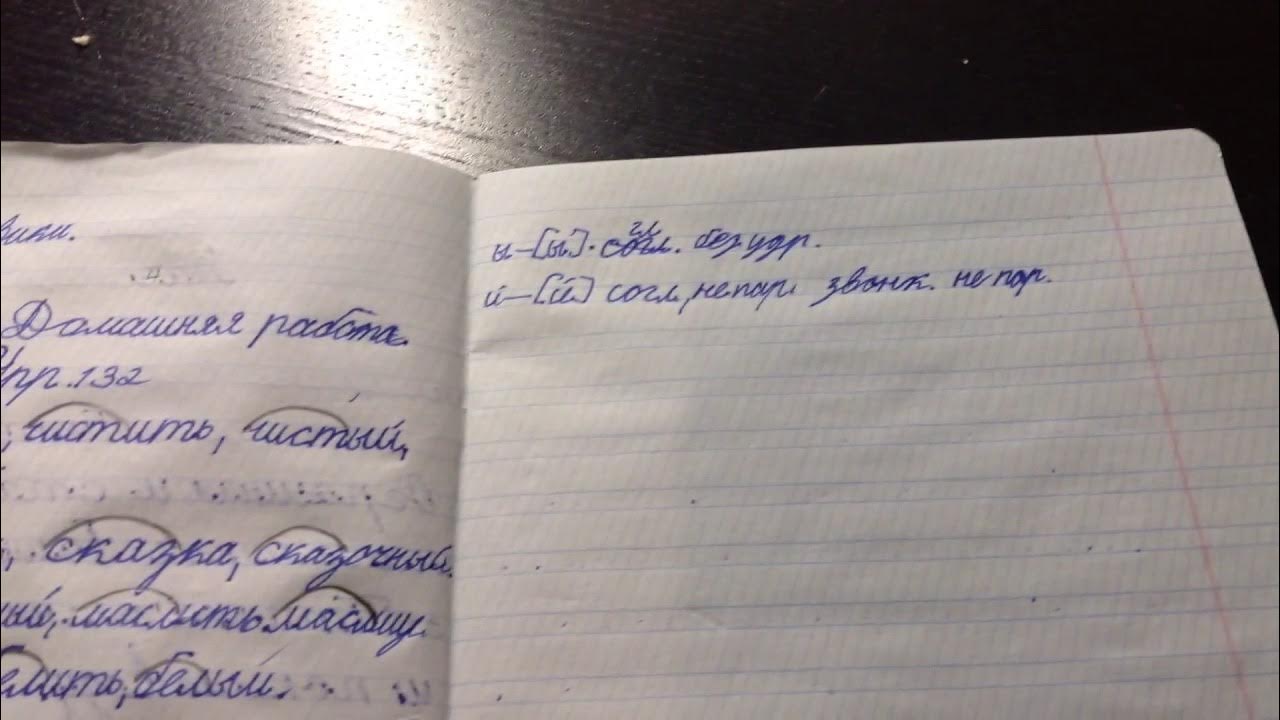 Домашняя работа.
Упр.132
чистить, чистый,
сказка, сказочный.
ный, маслить
белить, белый.
ы–[ы]. согл. безудр.
гл
й–[й] согл, непар. звонк. непар.